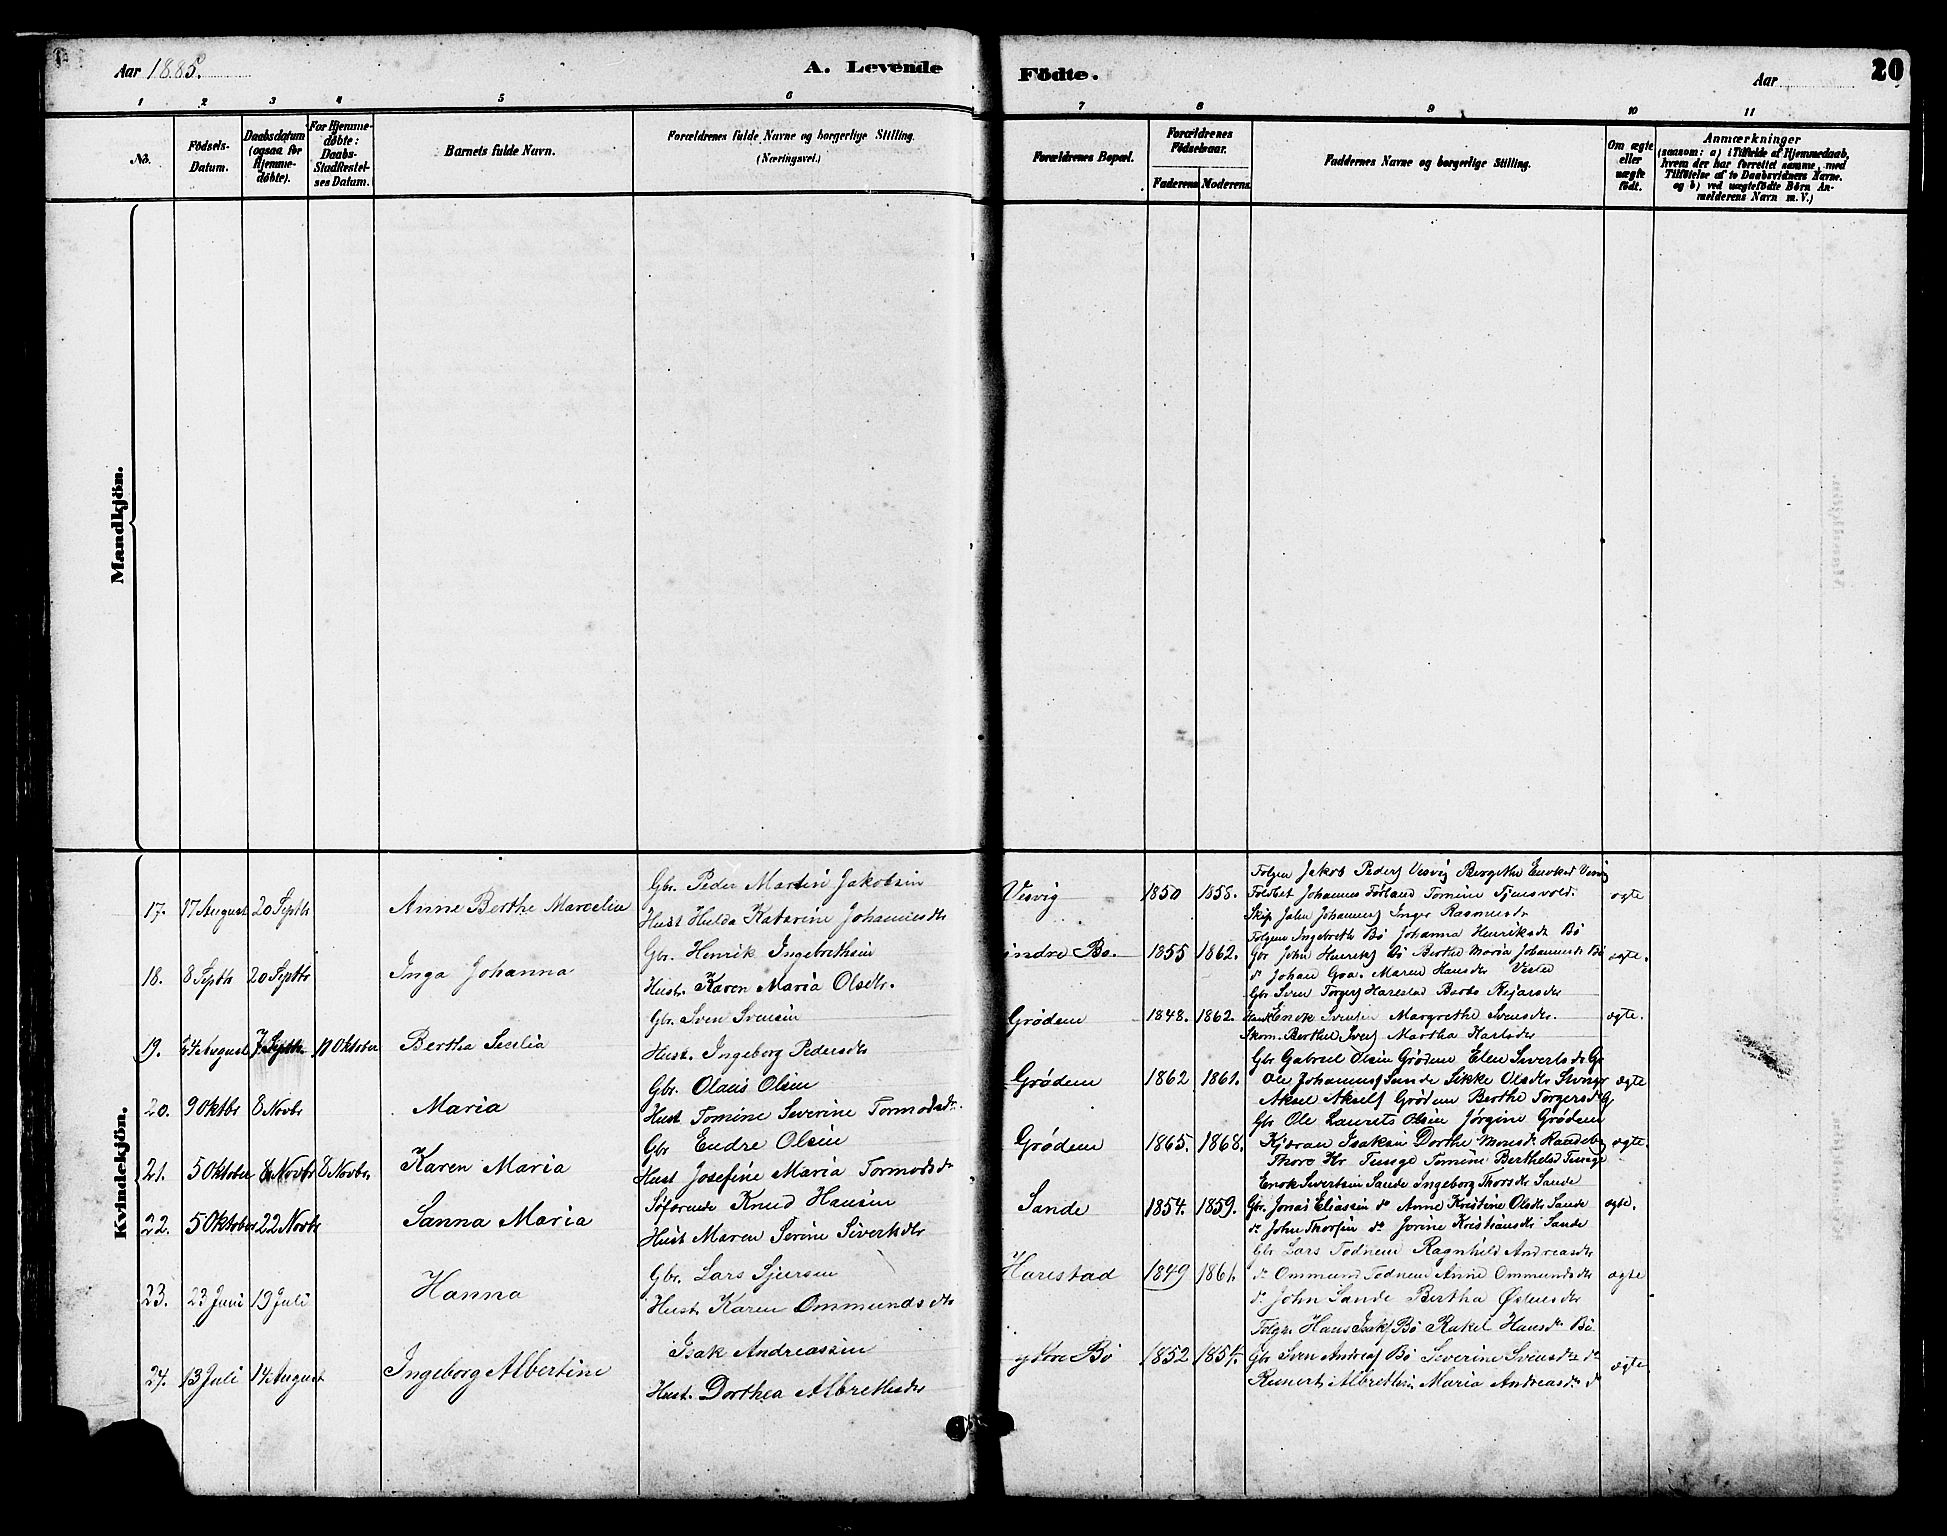 Aar 1885.
A. Levende
Födte.
Aar
20
1 2 3 4 5 6
7 8 9 10 11
No.
Födsels-Datum.
Daabsdatum (ogsaa for Hjemme-døbte).
For Hjemme-døbte: Daabs-Stadfæstel-ses Datum.
Barnets fulde Navn.
Forældrenes fulde Navne og borgerlige Stilling.
(Næringsvei.)
Forældrenes Bopæl.
Forældrenes Födselsaar.
Faderens Moderens
Faddernes Navne og borgerlige Stilling.
Om ægte eller uægte født.
Anmærkninger
(saasom: a) i Tilfælde af Hjemmedaab, hvem der har forrettet samme, med Tilföielse af to Daabsvidners Navne. og b) ved uægtefödte Börn An-melderens Navn m. V.)
Mandkjön.
Kvindekjön.
17. 17 August 20 Septbr Anne Berthe Marcelia
Gbr. Peder Martin Jakobsen
Hust Hulda Katarine Johannesdtr
Vesvig 1850 1858.
Folgem Jakob Peders Vesvig Bergithe
Johannes Førland Tomine
Skip. Johannes Inger Rasmusdr
ægte
18. 8 Septbr 20 Septbr Inga Johanna
Gbr. Henrik Ingebrethsen
Hustr. Karen Maria Olsdtr.
indre Bø. 1855 1862.
Folgem Ingebreth Bø Johanna Henriksdr Bø
Gbr John Henriks Bø Berthe Maria Johannesdr Bø
do Johan Goa. Maren Hansdr Vistee
ægte.
19. 24 August 7 Septbr. 11 Oktober Bertha Secilia
Gbr. Sven Svensen
Hust. Ingeborg Pedersdtr
Grødem 1848. 1862.
Gbr Sven Torgers Harestad Berte Rejarsdtr
Enok Svensen Margrethe Svensdtr.
Skom. Berthel Ivers Martha Karlsdtr
ægte.
20. 9 Oktbr 8 Novbr Maria
Gbr. Olaus Olsen
Hust Tomine Severine Tormodsdr.
Grødem 1862 1861.
Gbr Gabriel Olsen Grødem Elen Sivertsdr Gr
Ole Johannes Sande Sikke Olsdtr
Aksel Aksels Grødem Berthe Torgersdr G
ægte
21. 5 Oktober 8 Novbr 8 Novbr. Karen Maria
Gbr Endre Olsen
Hust Josefine Maria Tormodsdr
Grødem 1865. 1868.
Gbr Ole Laurits Olsen Jørgine Grødem
Kjøran Isaksen Dorthe Monsdr Randeby
Thore Hr. Tunge Tomine Berthelsd Tunge
ægte.
22. 5 Oktober 22 Novbr Sanna Maria
Søfarende Knud Hansen
Hust Maren Serine Sivertsdtr
Sande 1854. 1859.
Enok Sivertsen Sande Ingeborg Thorsdtr Sande
Gbr. Jonas Eliassen do Anne Kristine Olsdtr Sande
do John Thorsen do Jorine Kristiansdtr Sande
ægte.
23. 23 Juni 19 Juli Hanna
Gbr. Lars Sjursen
Hust Karen Ommundsdtr
Harestad 1849 1861.
Gbr Lars Todnem Ragnhild Andreasdtr
do Ommund Todnem Anne Ommundsdtr
do John Sande Bertha Østensdtr
ægte
24. 13 Juli 14 August Ingeborg Albertine
Isak Andreassen
Hust. Dorthea Albrethsdtr
ytre Bø 1852 1854.
Folgm. Hans Isaks Bø Rakel Hansdr Bø
Gbr Sven Andreas Bø Severine Svensdtr do
Reinert Albrethsen Maria Andreasdr do
ægte